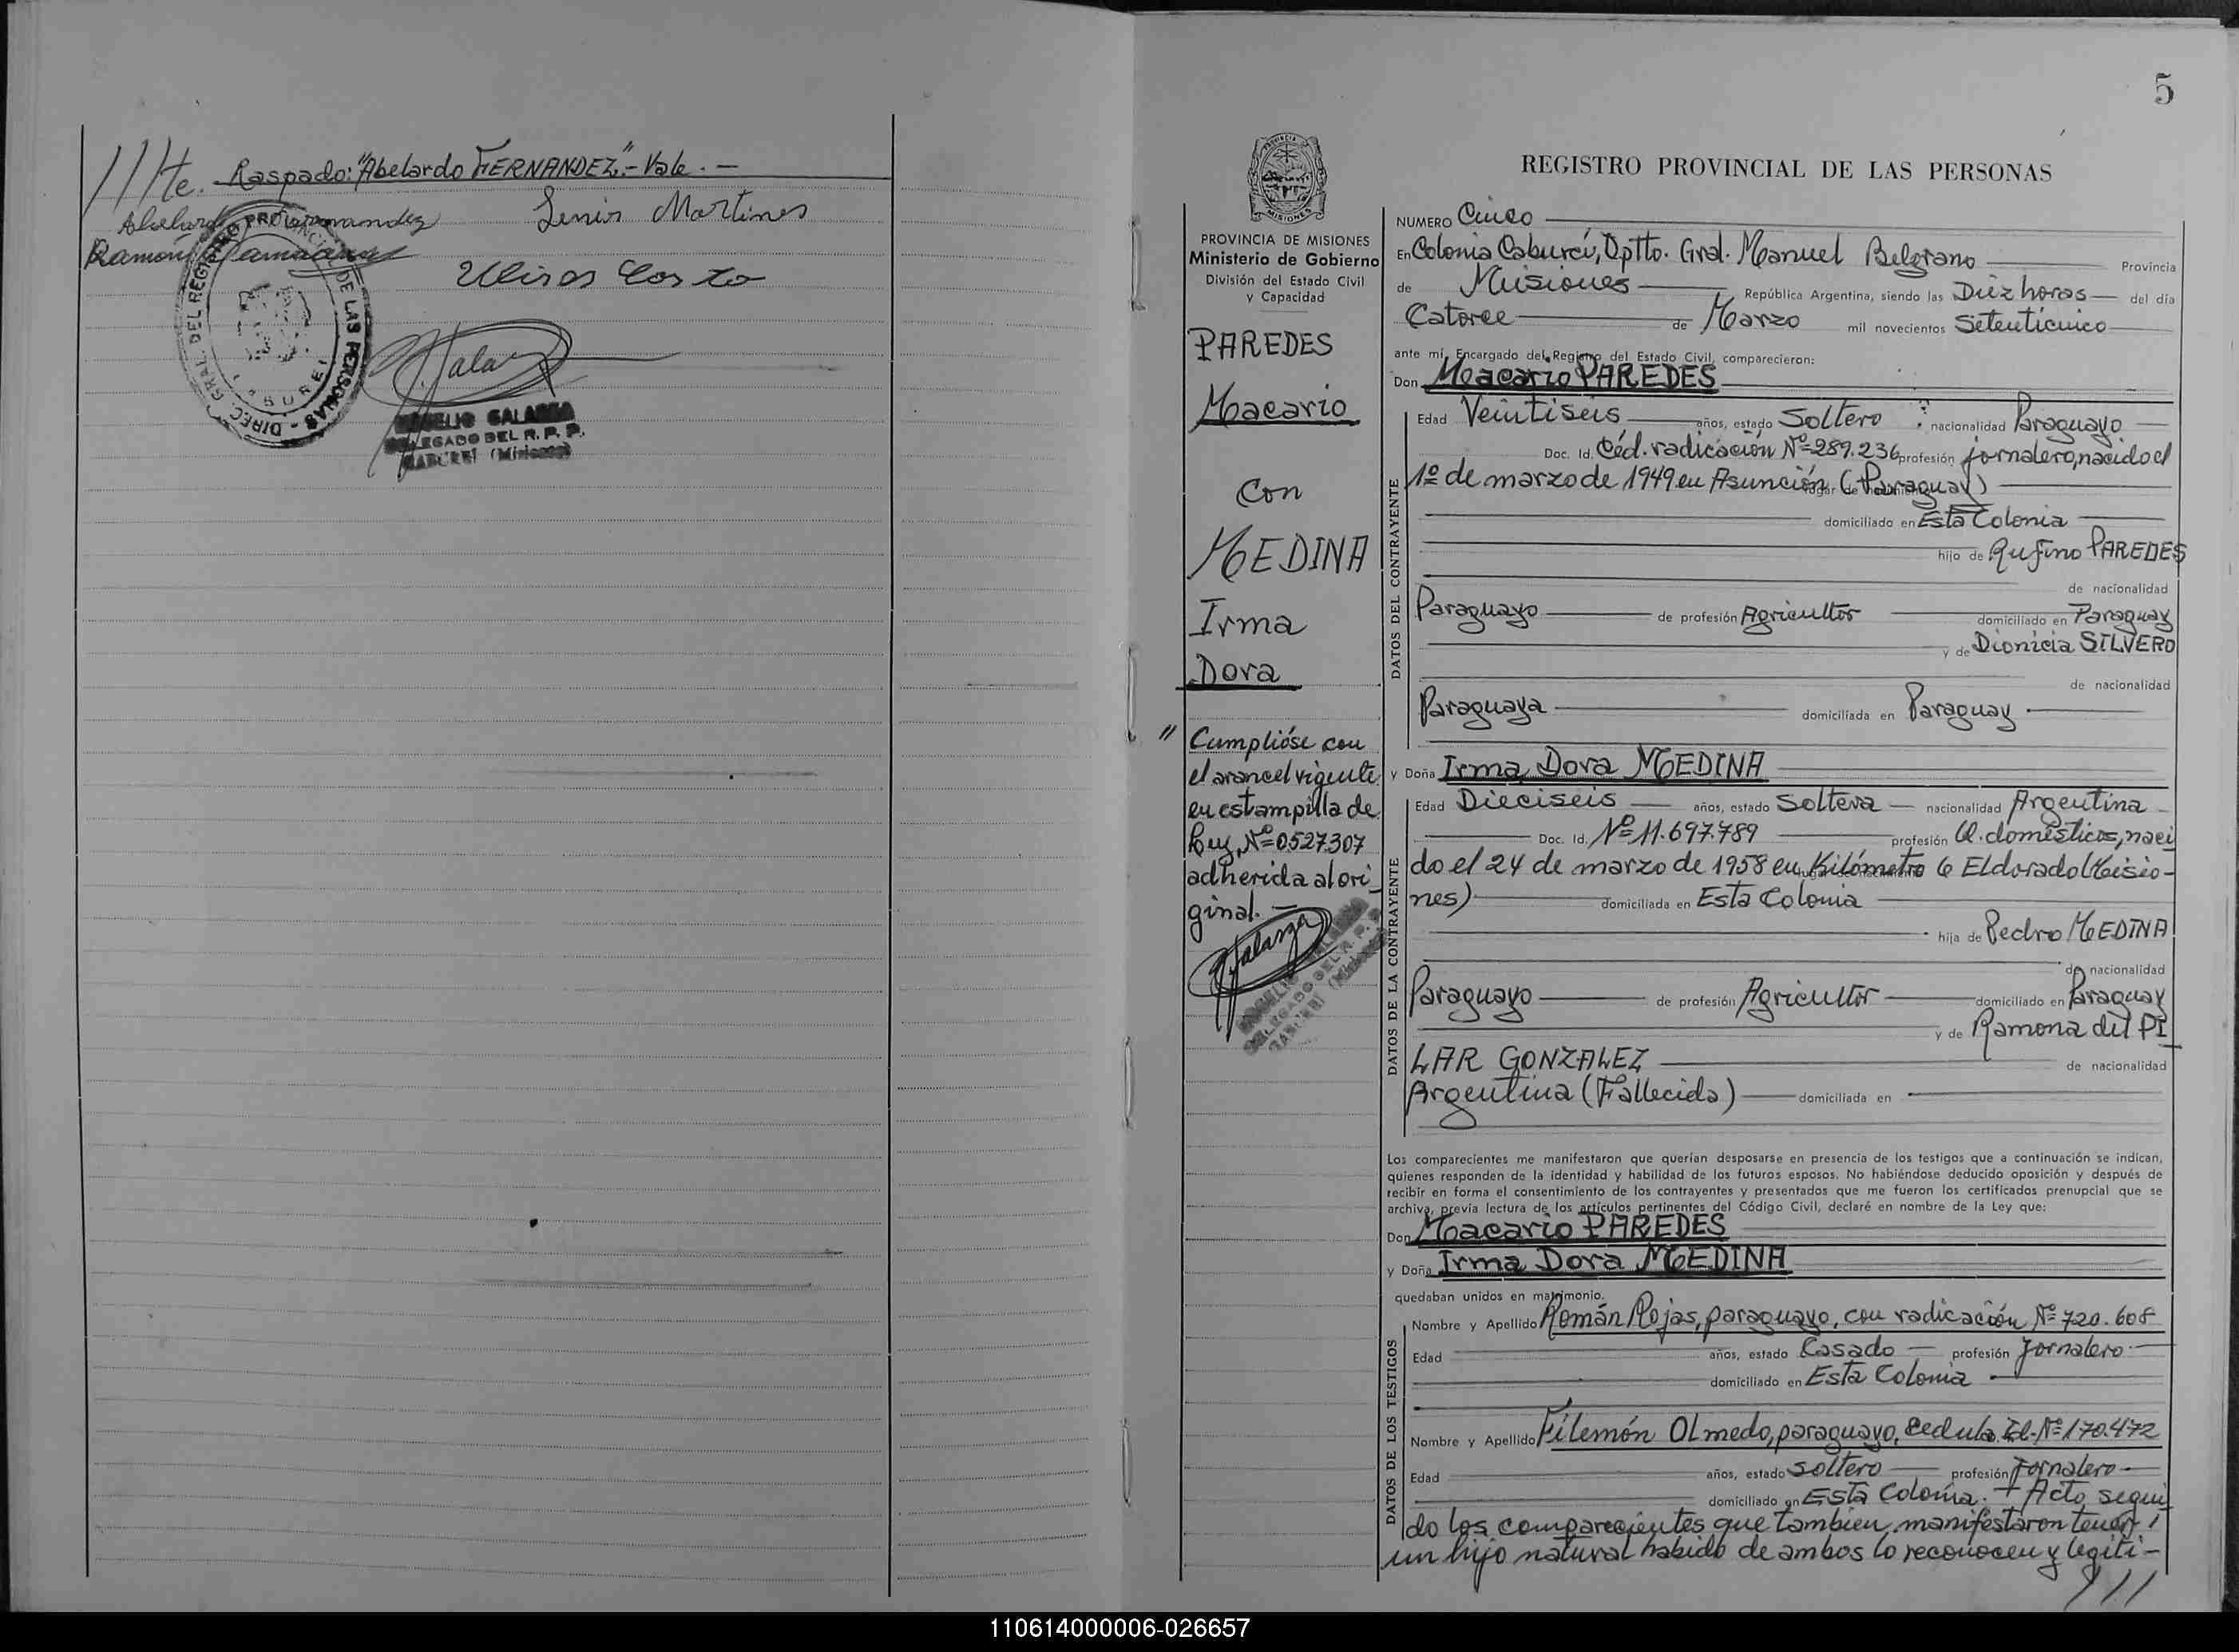 ///te. Raspado: "Abelardo FERNANDEZ".- Vale. —
Lenir Martines
Ramón
DIREC. GRAL. DEL REGISTRO PROVINCIAL DE LAS PERSONAS
DELEGADO DEL R. P. P.
(Misiones)
5
PROVINCIA DE MISIONES
Ministerio de Gobierno
División del Estado Civil
y Capacidad
PAREDES
Macario
Con
MEDINA
Irma
Dora
" Cumplióse con
el arancel vigente
en estampilla de
Ley, Nº 0527307
adherida al ori-
ginal. —
REGISTRO PROVINCIAL DE LAS PERSONAS
NUMERO Cinco
En Colonia Caburei, Dptto. Gral. Manuel Belgrano Provincia
de Misiones República Argentina, siendo las Diez horas del día
Catorce de Marzo mil novecientos Setenticinco
ante mí, Encargado del Registro del Estado Civil, comparecieron:
Don Macario PAREDES
DATOS DEL CONTRAYENTE
Edad Veintiseis años, estado Soltero nacionalidad Paraguayo
Doc. Id. Céd. radicación Nº 289.236 profesión jornalero, nacido el
1º de marzo de 1949 en Asunción (Paraguay)
domiciliado en Esta Colonia
hijo de Rufino PAREDES
de nacionalidad
Paraguayo de profesión Agricultor domiciliado en Paraguay
y de Dionicia SILVERO
de nacionalidad
Paraguaya domiciliada en Paraguay
y Doña Irma Dora MEDINA
DATOS DE LA CONTRAYENTE
Edad Dieciseis años, estado Soltera nacionalidad Argentina
Doc. Id. Nº 11.697.789 profesión Q. domésticos, naci
do el 24 de marzo de 1958 en Kilómetro 6 Eldorado (Misio-
nes) domiciliada en Esta Colonia
hija de Pedro MEDINA
de nacionalidad
Paraguayo de profesión Agricultor domiciliado en Paraguay
y de Ramona del PI
LAR GONZALEZ de nacionalidad
Argentina (Fallecida) domiciliada en
Los comparecientes me manifestaron que querían desposarse en presencia de los testigos que a continuación se indican,
quienes responden de la identidad y habilidad de los futuros esposos. No habiéndose deducido oposición y después de
recibir en forma el consentimiento de los contrayentes y presentados que me fueron los certificados prenupcial que se
archiva, previa lectura de los artículos pertinentes del Código Civil, declaré en nombre de la Ley que:
Don Macario PAREDES
y Doña Irma Dora MEDINA
quedaban unidos en matrimonio.
DATOS DE LOS TESTIGOS
Nombre y Apellido Román Rojas, paraguayo, con radicación Nº 720.608
Edad años, estado Casado profesión Jornalero
domiciliado en Esta Colonia
Nombre y Apellido Filemón Olmedo, paraguayo, Cedula Id. Nº 170.472
Edad años, estado Soltero profesión Jornalero
domiciliado en Esta Colonia. + Acto segui
do los comparecientes que tambien manifestaron tener
un hijo natural habido de ambos lo reconocen y legiti-
///
110614000006-026657